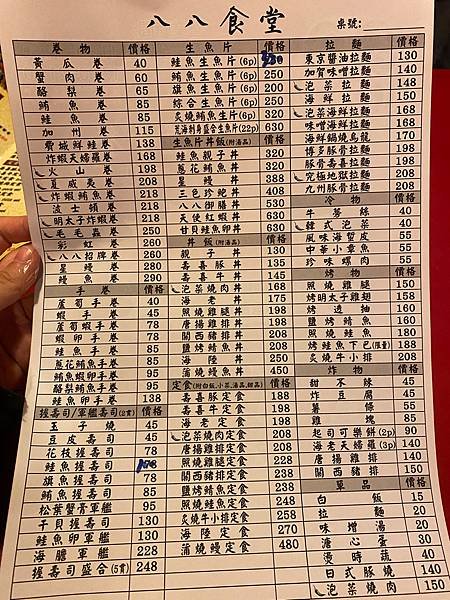 八八食堂
桌號:
卷物 價格
黃瓜卷 40
蟹肉卷 60
酪梨卷 65
鮪魚卷 85
鮭魚卷 85
加州卷 115
費城鮮鮭卷 138
炸蝦天婦羅卷 168
火山卷 198
夏威夷卷 208
炸蝦鮪魚卷 218
波士頓卷 218
明太子炸蝦卷 218
毛毛蟲卷 250
彩虹卷 260
八八招牌卷 260
星鰻卷 260
鰻魚卷 290
手卷 價格
蘆筍手卷 40
蝦手卷 45
蘆筍蝦手卷 78
蝦卵手卷 78
鮭魚手卷 85
蔥花鮪魚手卷 95
鮪魚蝦卵手卷 95
酪梨鮭魚手卷 95
握壽司/軍艦壽司(2貫) 價格
玉子燒 45
豆皮壽司 45
花枝握壽司 78
鮭魚握壽司
旗魚握壽司 85
鮪魚握壽司 85
松葉蟹軍艦 95
干貝握壽司 130
鮭魚卵軍艦 130
海膽軍艦 228
握壽司盛合(5貫) 248
生魚片 價格
鮭魚生魚片(6p)
鮪魚生魚片(6p) 250
旗魚生魚片(6p) 200
綜合生魚片(6p) 250
炙燒鮪魚生魚片(6p) 320
荒海刺身盛合生魚片(22p) 630
生魚片丼飯(附湯品) 價格
鮭魚親子丼 320
蔥花鮪魚丼 320
星鰻丼 388
三色珍鮑丼 408
八八御膳丼 538
天使紅蝦丼 630
甘貝鮭魚卵丼 630
丼飯(附湯品) 價格
親子丼 130
壽喜豚丼 135
壽喜牛丼 145
泡菜燒肉丼 158
海老丼 158
照燒雞腿丼 158
唐揚雞排丼 158
關西豬排丼 158
鹽烤鯖魚丼 208
海陸丼 250
蒲燒鰻魚丼 450
定食(附白飯,小菜,湯品,甜品) 價格
壽喜豚定食 188
壽喜牛定食 198
海老定食 208
泡菜燒肉定食 208
唐揚雞排定食 208
照燒雞腿定食 208
關西豬排定食 208
鹽烤鯖魚定食 238
照燒鮭魚定食 248
炙燒牛小排定食 258
海陸定食 270
蒲燒鰻定食 480
拉麵 價格
東京醬油拉麵 130
加賀味噌拉麵 140
泡菜拉麵 148
海鮮拉麵 150
泡菜海鮮拉麵 168
味噌海鮮拉麵 168
海鮮鍋燒烏龍 170
博多豚骨拉麵 198
豚骨壽喜拉麵 198
究極地獄拉麵 198
九州豚骨拉麵 198
冷物 價格
牛蒡絲 40
韓式泡菜 40
風味海蜇皮 55
中華小章魚 55
珍味螺肉 55
烤物 價格
照燒雞腿 150
烤明太子雞翅 158
烤透抽 160
鹽烤鯖魚 160
照燒鮭魚 180
烤鮭魚下巴(限量) 188
炙燒牛小排 208
炸物 價格
甜不辣 45
炸豆腐 45
薯條 55
雞塊 85
起司可樂餅(2p) 90
海老天婦羅(3p) 140
唐揚雞排 140
關西豬排 150
單品 價格
白飯 15
拉麵 20
味增湯 20
溏心蛋 30
燙時蔬 40
日式豚燒 140
泡菜燒肉 150